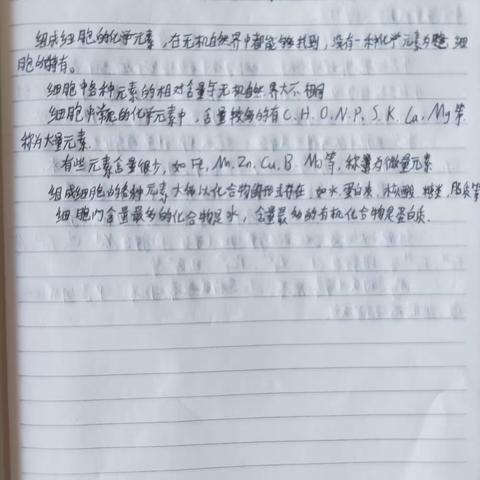 组成细胞的化学元素,在无机自然界中都能够找到,没有一种化学元素为细
胞所特有。
细胞中各种元素的相对含量与无机自然界大不相同
细胞中常见的化学元素中,含量较多的有C.H.O.N.P.S.K.Ca.Mg等
称为大量元素.
有些元素含量很少,如Fe,Mn.Zn.Cu.B.Mo等,称为微量元素
组成细胞的各种元素大多以化合物的形式存在,如水,蛋白质.核酸.糖类.脂质等
细胞内含量最多的化合物是水,含量最多的有机化合物是蛋白质.